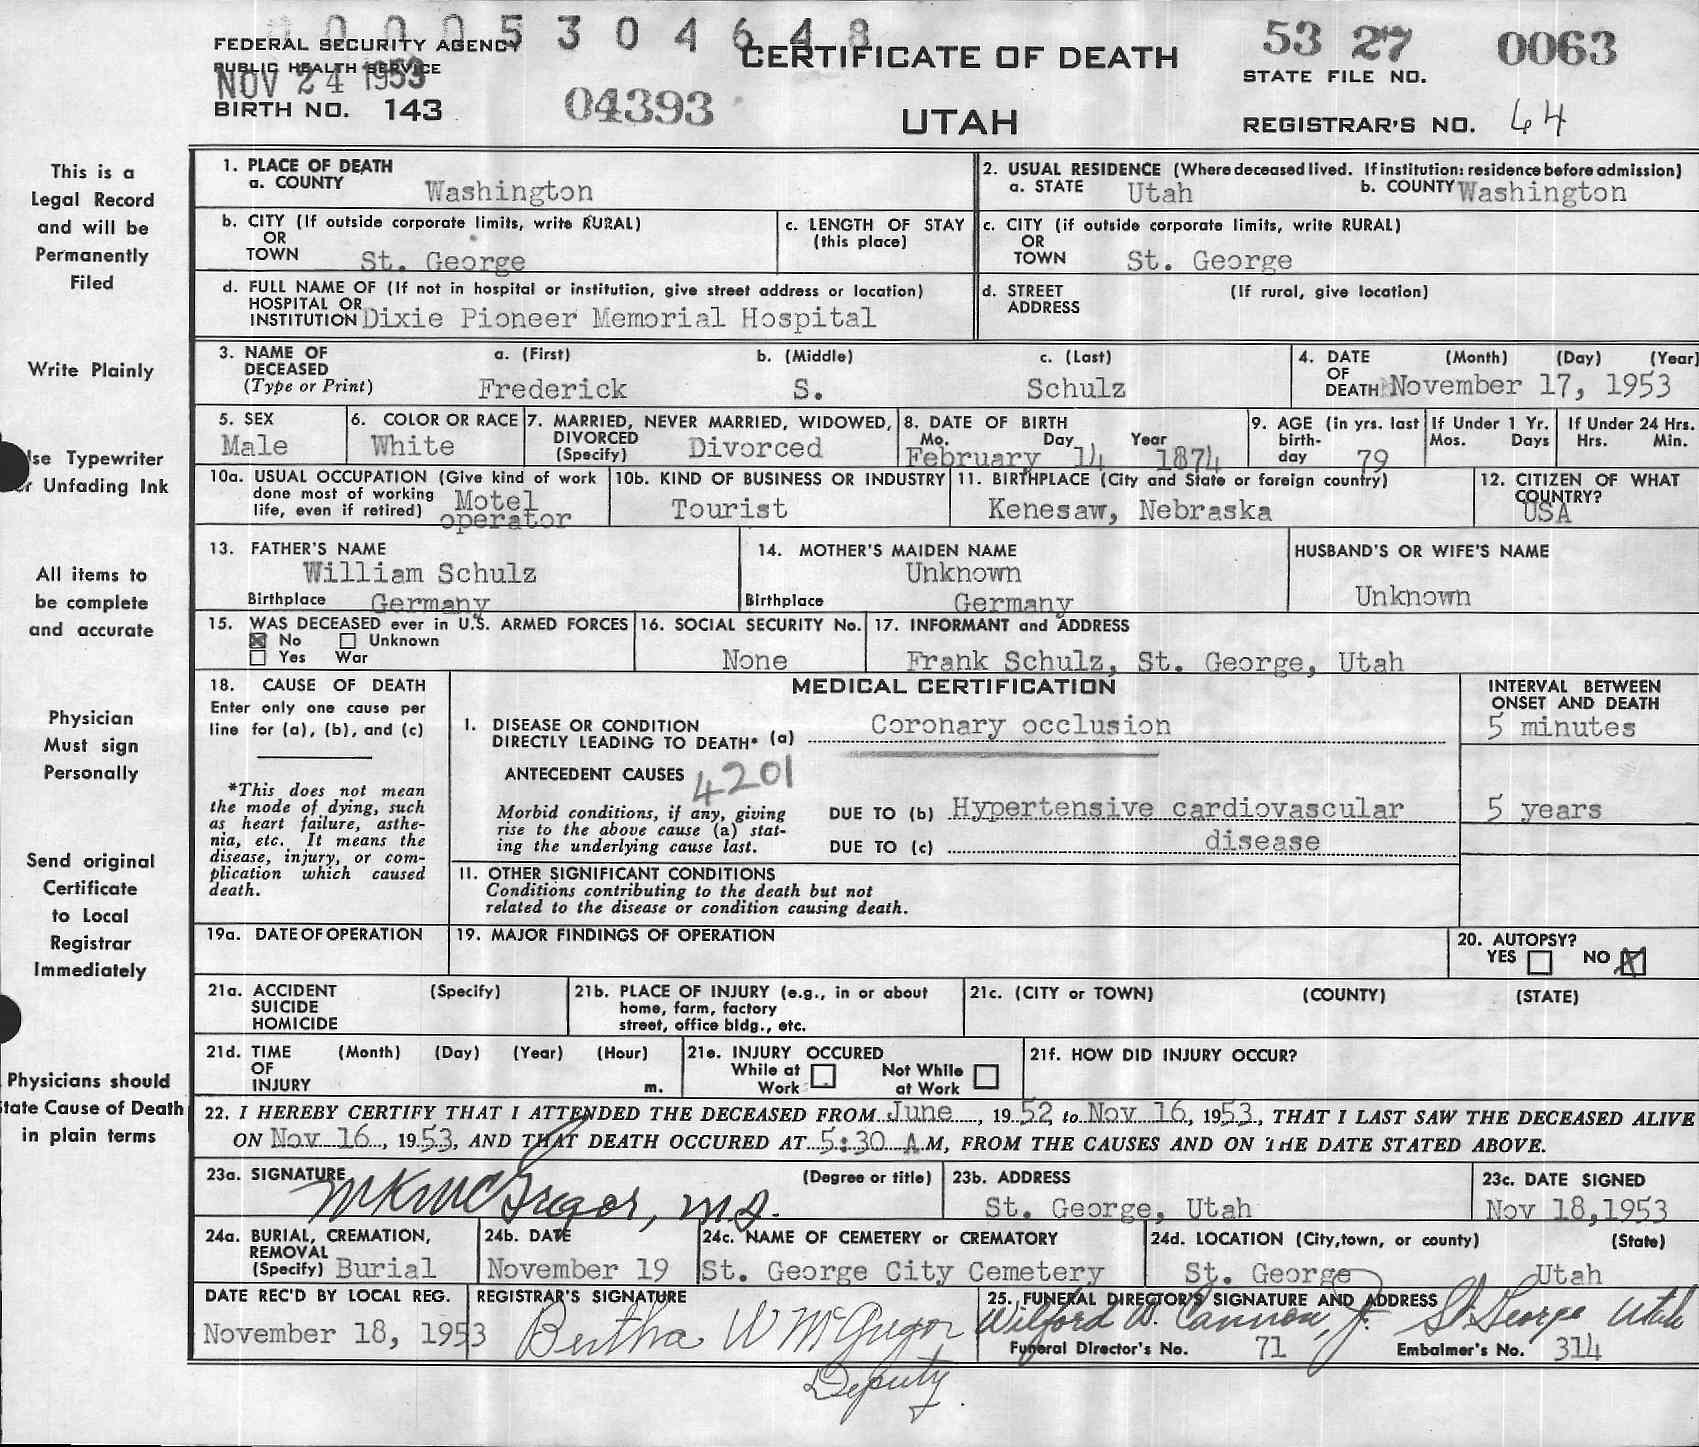 0 0 0 5 3 0 4 6 4 8
FEDERAL SECURITY AGENCY
PUBLIC HEALTH SERVICE
NOV 24 1953
BIRTH NO. 143
04393
CERTIFICATE OF DEATH
UTAH
53 27 0063
STATE FILE NO.
REGISTRAR'S NO. 64
This is a
Legal Record
and will be
Permanently
Filed
Write Plainly
se Typewriter
r Unfading Ink
All items to
be complete
and accurate
Physician
Must sign
Personally
Send original
Certificate
to Local
Registrar
Immediately
Physicians should
tate Cause of Death
in plain terms
1. PLACE OF DEATH
a. COUNTY Washington
2. USUAL RESIDENCE (Where deceased lived. If institution: residence before admission)
a. STATE Utah b. COUNTY Washington
b. CITY (If outside corporate limits, write RURAL)
OR
TOWN St. George
c. LENGTH OF STAY
(this place)
c. CITY (if outside corporate limits, write RURAL)
OR
TOWN St. George
d. FULL NAME OF (If not in hospital or institution, give street address or location)
HOSPITAL OR
INSTITUTION Dixie Pioneer Memorial Hospital
d. STREET (If rural, give location)
ADDRESS
3. NAME OF a. (First) b. (Middle) c. (Last)
DECEASED
(Type or Print) Frederick S. Schulz
4. DATE (Month) (Day) (Year)
OF
DEATH November 17, 1953
5. SEX
Male
6. COLOR OR RACE
White
7. MARRIED, NEVER MARRIED, WIDOWED,
DIVORCED
(Specify) Divorced
8. DATE OF BIRTH
Mo. Day Year
February 14 1874
9. AGE (in yrs. last
birth-
day 79
If Under 1 Yr.
Mos. Days
If Under 24 Hrs.
Hrs. Min.
10a. USUAL OCCUPATION (Give kind of work
done most of working
life, even if retired) Motel
operator
10b. KIND OF BUSINESS OR INDUSTRY
Tourist
11. BIRTHPLACE (City and State or foreign country)
Kenesaw, Nebraska
12. CITIZEN OF WHAT
COUNTRY?
USA
13. FATHER'S NAME
William Schulz
Birthplace Germany
14. MOTHER'S MAIDEN NAME
Unknown
Birthplace Germany
HUSBAND'S OR WIFE'S NAME
Unknown
15. WAS DECEASED ever in U.S. ARMED FORCES
No Unknown
Yes War
16. SOCIAL SECURITY No.
None
17. INFORMANT and ADDRESS
Frank Schulz, St. George, Utah
18. CAUSE OF DEATH
Enter only one cause per
line for (a), (b), and (c)
*This does not mean
the mode of dying, such
as heart failure, asthe-
nia, etc. It means the
disease, injury, or com-
plication which caused
death.
MEDICAL CERTIFICATION
I. DISEASE OR CONDITION
DIRECTLY LEADING TO DEATH* (a) Coronary occlusion
ANTECEDENT CAUSES 4201
Morbid conditions, if any, giving
rise to the above cause (a) stat-
ing the underlying cause last.
DUE TO (b) Hypertensive cardiovascular
DUE TO (c) disease
INTERVAL BETWEEN
ONSET AND DEATH
5 minutes
5 years
11. OTHER SIGNIFICANT CONDITIONS
Conditions contributing to the death but not
related to the disease or condition causing death.
19a. DATE OF OPERATION
19. MAJOR FINDINGS OF OPERATION
20. AUTOPSY?
YES NO X
21a. ACCIDENT (Specify)
SUICIDE
HOMICIDE
21b. PLACE OF INJURY (e.g., in or about
home, farm, factory
street, office bldg., etc.
21c. (CITY or TOWN) (COUNTY) (STATE)
21d. TIME (Month) (Day) (Year) (Hour)
OF
INJURY m.
21e. INJURY OCCURED
While at Not While
Work at Work
21f. HOW DID INJURY OCCUR?
22. I HEREBY CERTIFY THAT I ATTENDED THE DECEASED FROM June, 1952 to Nov 16, 1953, THAT I LAST SAW THE DECEASED ALIVE
ON Nov 16, 1953, AND THAT DEATH OCCURED AT 5:30 A.M, FROM THE CAUSES AND ON THE DATE STATED ABOVE.
23a. SIGNATURE (Degree or title)
M K McGregor, M.D.
23b. ADDRESS
St. George, Utah
23c. DATE SIGNED
Nov 18, 1953
24a. BURIAL, CREMATION,
REMOVAL
(Specify) Burial
24b. DATE
November 19
24c. NAME OF CEMETERY or CREMATORY
St. George City Cemetery
24d. LOCATION (City, town, or county) (State)
St. George Utah
DATE REC'D BY LOCAL REG.
November 18, 1953
REGISTRAR'S SIGNATURE
Bertha W McGregor
Deputy
25. FUNERAL DIRECTOR'S SIGNATURE AND ADDRESS
Wilford W. Cannon, Jr. St. George Utah
Funeral Director's No. 71 Embalmer's No. 314